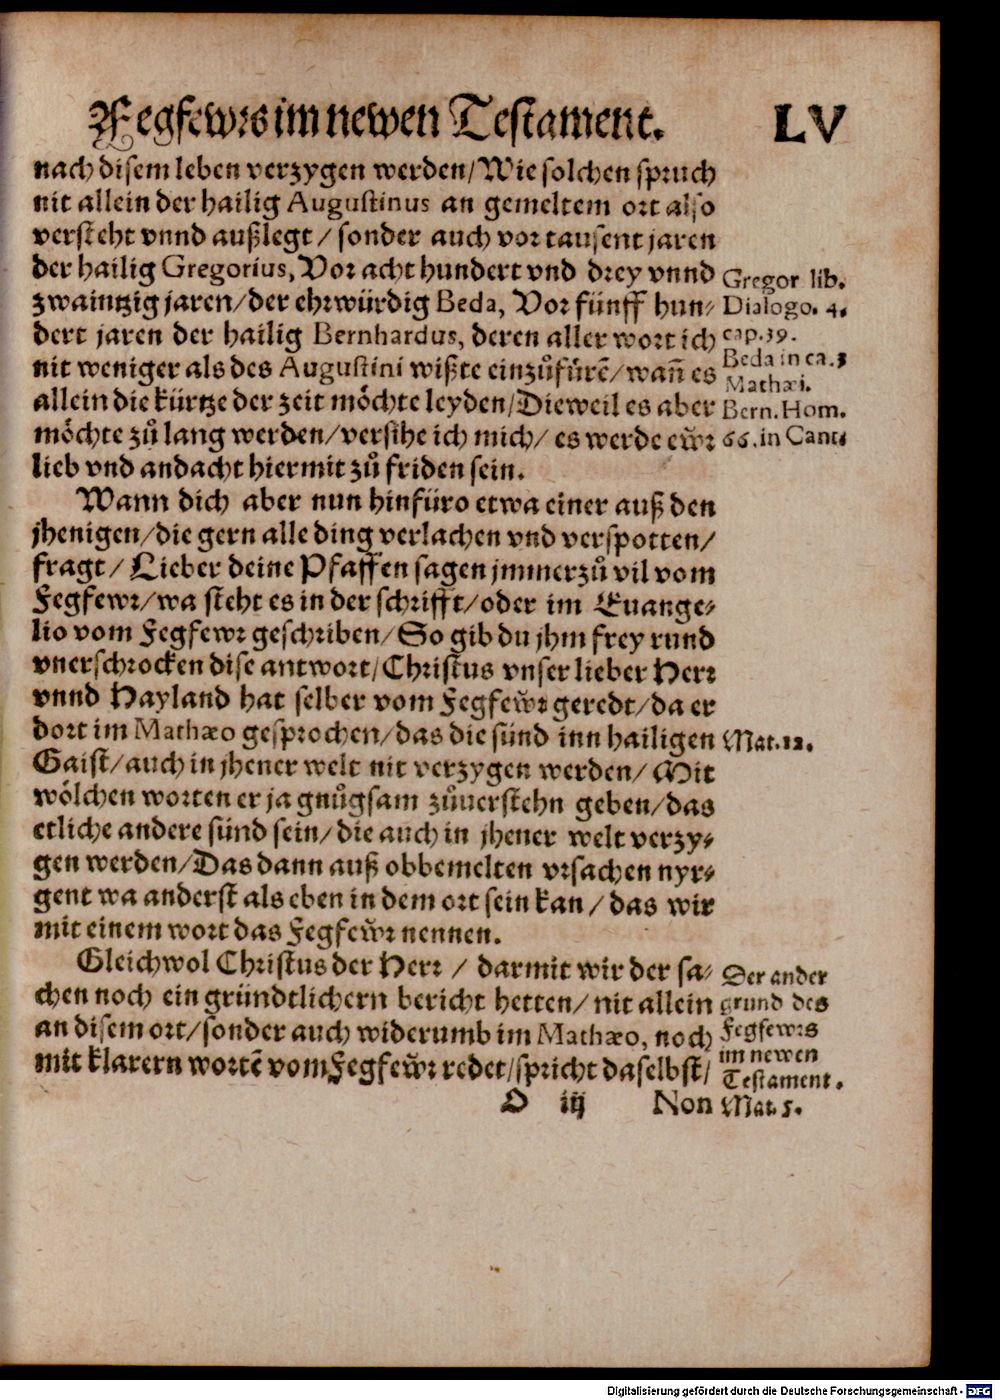 Fegfewrs im newen Testament. LV
nach disem leben verzygen werden/Wie solchen spruch
nit allein der hailig Augustinus an gemeltem ort also
versteht vnnd außlegt / sonder auch vor tausent jaren
der hailig Gregorius, Vor acht hundert vnd drey vnnd
zwaintzig jaren/der ehrwürdig Beda, Vor fünff hun-
dert jaren der hailig Bernhardus, deren aller wort ich
nit weniger als des Augustini wißte einzůfürẽ/wañ es
allein die kürtze der zeit möchte leyden/Dieweil es aber
möchte zů lang werden/versihe ich mich/ es werde ew̃r
lieb vnd andacht hiermit zů friden sein.
Gregor lib.
Dialogo. 4.
cap.39.
Beda in ca.3
Mathæi.
Bern. Hom.
66.in Cant.
Wann dich aber nun hinfüro etwa einer auß den
jhenigen/die gern alle ding verlachen vnd verspotten/
fragt/ Lieber deine Pfaffen sagen jmmerzů vil vom
Fegfewr/wa steht es in der schrifft/oder im Euange-
lio vom Fegfewr geschriben/So gib du jhm frey rund
vnerschrocken dise antwort/Christus vnser lieber Herr
vnnd Hayland hat selber vom Fegfew̃r geredt/da er
dort im Mathæo gesprochen/das die sünd inn hailigen
Gaist/auch in jhener welt nit verzygen werden/ Mit
wölchen worten er ja gnůgsam zůuerstehn geben/das
etliche andere sünd sein/die auch in jhener welt verzy-
gen werden/Das dann auß obbemelten vrsachen nyr-
gent wa anderst als eben in dem ort sein kan / das wir
mit einem wort das Fegfew̃r nennen.
Mat.12.
Gleichwol Christus der Herr / darmit wir der sa-
chen noch ein gründtlichern bericht hetten/nit allein
an disem ort/sonder auch widerumb im Mathæo, noch
mit klarern wortẽ vom Fegfew̃r redet/spricht daselbst/
Der ander
grund des
Fegfewrs
im newen
Testament.
Mat.5.
O iij Non
Digitalisierung gefördert durch die Deutsche Forschungsgemeinschaft - DFG